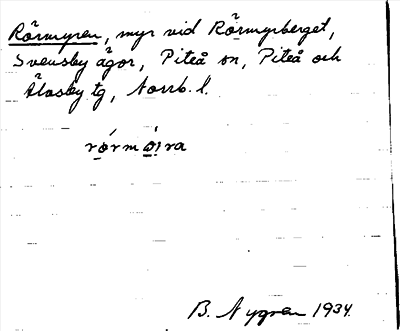 Rörmyren, myr vid Rörmyrberget,
Svensby ägor, Piteå sn, Piteå och
Älvsby tg, Norrb. l.
rórmọ́ịra
B. Nygren 1934.